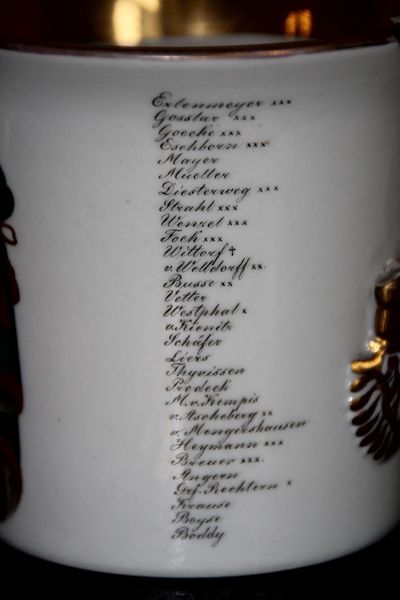 Erlenmeyer xxx
Gosslar xxx
Goecke xxx
Eschborn xxx
Mayer
Mueller
Diesterweg xxx
Strahl xxx
Wenzel xxx
Fock xxx
Wittorf †
v. Welldorff xx
Busse xx
Vetter
Westphal x
v. Kienitz
Schäfer
Liers
Thyrissen
Predeck
M. v. Kempis
v. Ascheberg xx
v. Mengershausen
Heymann xxx
Breuer xxx.
Angern
Grf. Rechtern x
Krause
Boyse
Boddy